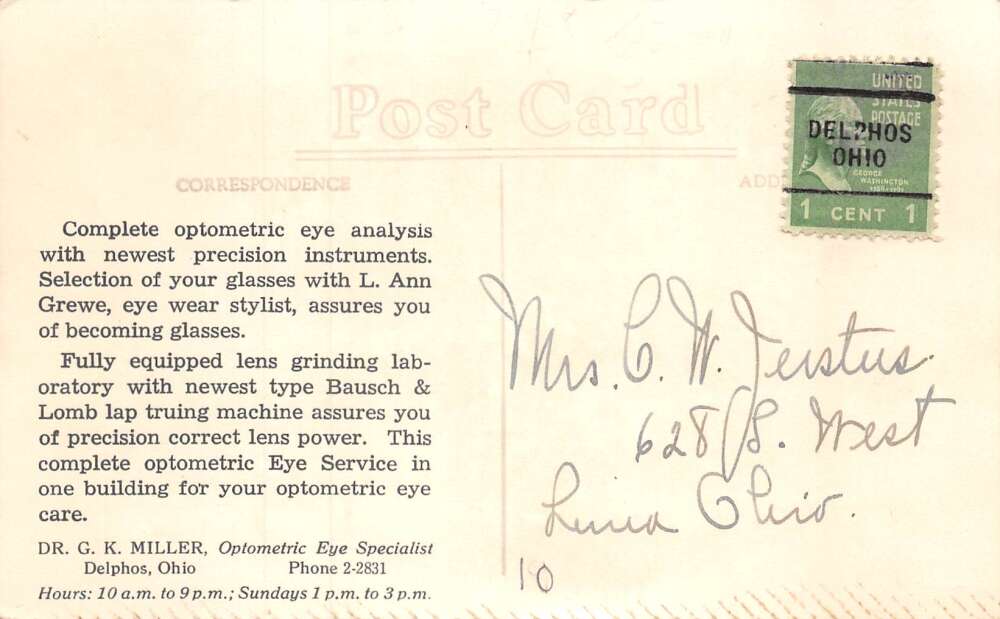 Post Card
CORRESPONDENCE
ADD
UNITED
STATES
POSTAGE
DELPHOS
OHIO
GEORGE
WASHINGTON
1 CENT 1
Complete optometric eye analysis
with newest precision instruments.
Selection of your glasses with L. Ann
Grewe, eye wear stylist, assures you
of becoming glasses.
Fully equipped lens grinding lab-
oratory with newest type Bausch &
Lomb lap truing machine assures you
of precision correct lens power. This
complete optometric Eye Service in
one building for your optometric eye
care.
DR. G. K. MILLER, Optometric Eye Specialist
Delphos, Ohio Phone 2-2831
Hours: 10 a.m. to 9 p.m.; Sundays 1 p.m. to 3 p.m.
Mrs. C. W. Jerstus.
628 S. West
Lima Ohio.
10